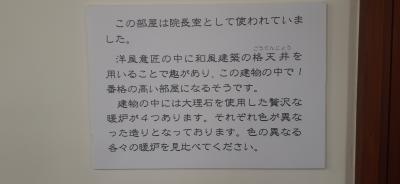 この部屋は院長室として使われていま
した。
洋風意匠の中に和風建築の格天井を
ごうてんじょう
用いることで趣があり、この建物の中で1
番格の高い部屋になるそうです。
建物の中には大理石を使用した贅沢な
暖炉が4つあります。それぞれ色が異な
った造りとなっております。色の異なる
各々の暖炉を見比べてください。